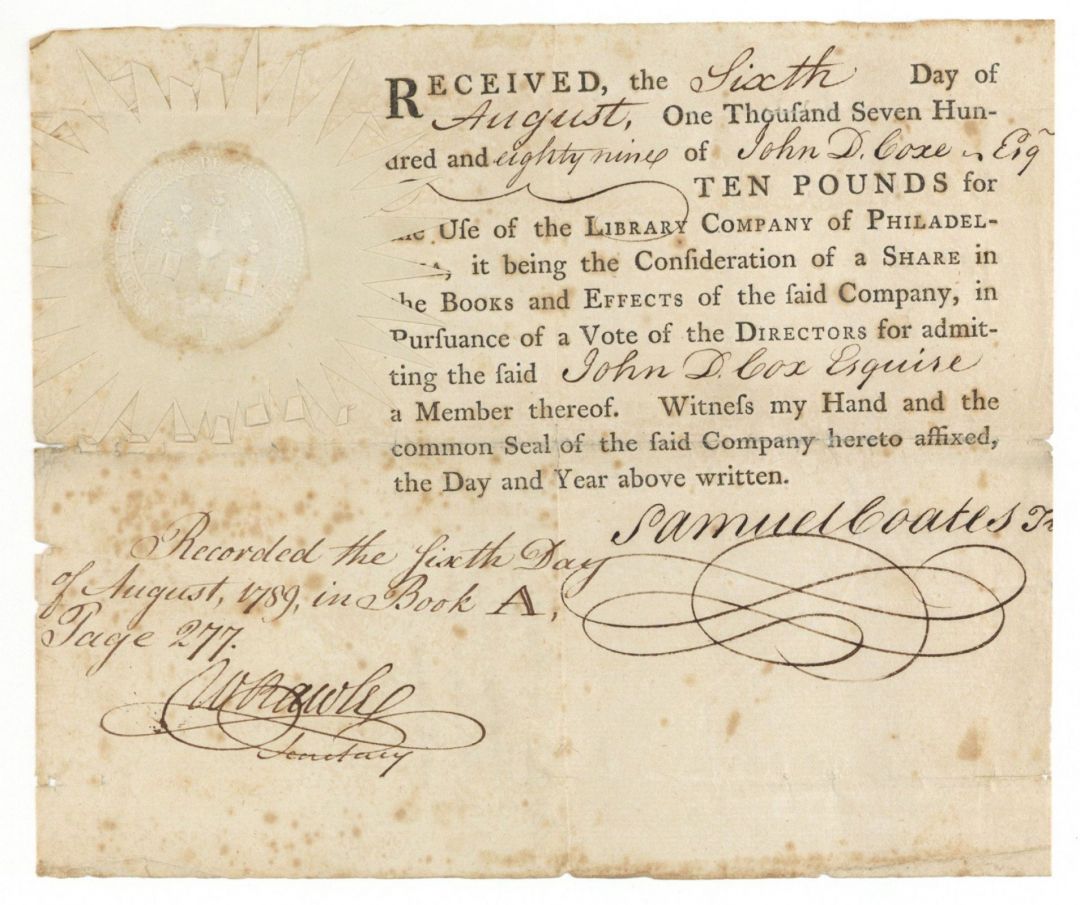 RECEIVED, the Sixth Day of
August, One Thouſand Seven Hun-
dred and eighty nine of John D. Coxe Esqr
TEN POUNDS for
Uſe of the LIBRARY COMPANY of PHILADEL-
it being the Conſideration of a SHARE in
he BOOKS and EFFECTS of the ſaid Company, in
Purſuance of a Vote of the DIRECTORS for admit-
ting the ſaid John D. Cox Esquire
a Member thereof. Witneſs my Hand and the
common Seal of the ſaid Company hereto affixed,
the Day and Year above written.
Samuel Coates Tr
Recorded the ſixth Day
of August, 1789, in Book A,
Page 277.
W Rawle
Secretary